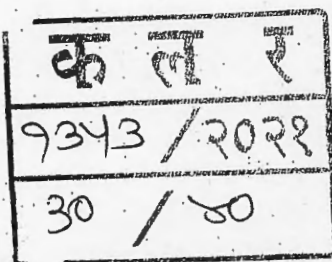 क ल र
१३५३ / २०२१
३० / ४०